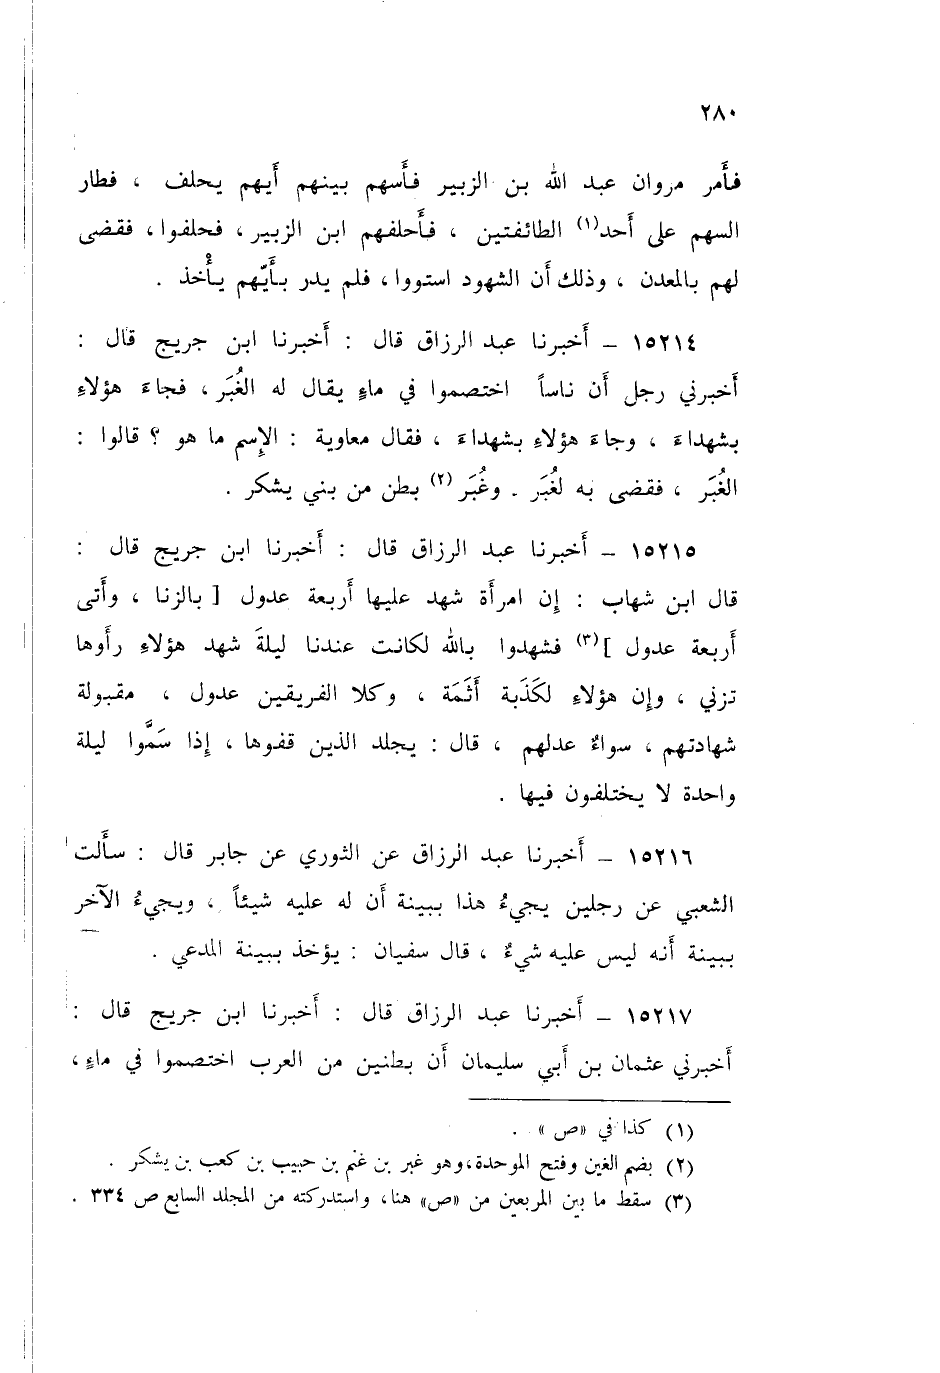 ٢٨٠
فأَمر مروان عبد الله بن الزبير فأَسهم بينهم أَيهم يحلف ، فطار
السهم على أَحد(١) الطائفتين ، فأَحلفهم ابن الزبير ، فحلفوا ، فقضى
لهم بالمعدن ، وذلك أَن الشهود استووا ، فلم يدر بأَيّهم يأْخذ .
١٥٢١٤ – أَخبرنا عبد الرزاق قال : أَخبرنا ابن جريج قال :
أَخبرني رجل أَن ناساً اختصموا في ماءٍ يقال له الغُبَر ، فجاءَ هؤلاءِ
بشهداءَ ، وجاءَ هؤلاءِ بشهداءَ ، فقال معاوية : الإِسم ما هو ؟ قالوا :
الغُبَر ، فقضى به لغُبَر . وغُبَر (٢) بطن من بني يشكر .
١٥٢١٥ – أَخبرنا عبد الرزاق قال : أَخبرنا ابن جريج قال :
قال ابن شهاب : إِن امرأَة شهد عليها أَربعة عدول [ بالزنا ، وأَتى
أَربعة عدول ](٣) فشهدوا بالله لكانت عندنا ليلةَ شهد هؤلاءِ رأَوها
تزني ، وإِن هؤلاءِ لكَذَبة أَثَمَة ، وكلا الفريقين عدول ، مقبولة
شهادتهم ، سواءٌ عدلهم ، قال : يجلد الذين قفوها ، إِذا سَمَّوا ليلة
واحدة لا يختلفون فيها .
١٥٢١٦ – أَخبرنا عبد الرزاق عن الثوري عن جابر قال : سأَلت
الشعبي عن رجلين يجيءُ هذا ببينة أَن له عليه شيئاً ، ويجيءُ الآخر
ببينة أَنه ليس عليه شيءٌ ، قال سفيان : يؤخذ ببينة المدعي .
١٥٢١٧ – أَخبرنا عبد الرزاق قال : أَخبرنا ابن جريج قال :
أَخبرني عثمان بن أَبي سليمان أَن بطنين من العرب اختصموا في ماءٍ ،
(١) كذا في «ص» .
(٢) بضم الغين وفتح الموحدة، وهو غبر بن غنم بن حبيب بن كعب بن يشكر .
(٣) سقط ما بين المربعين من «ص» هنا، واستدركته من المجلد السابع ص ٣٣٤ .